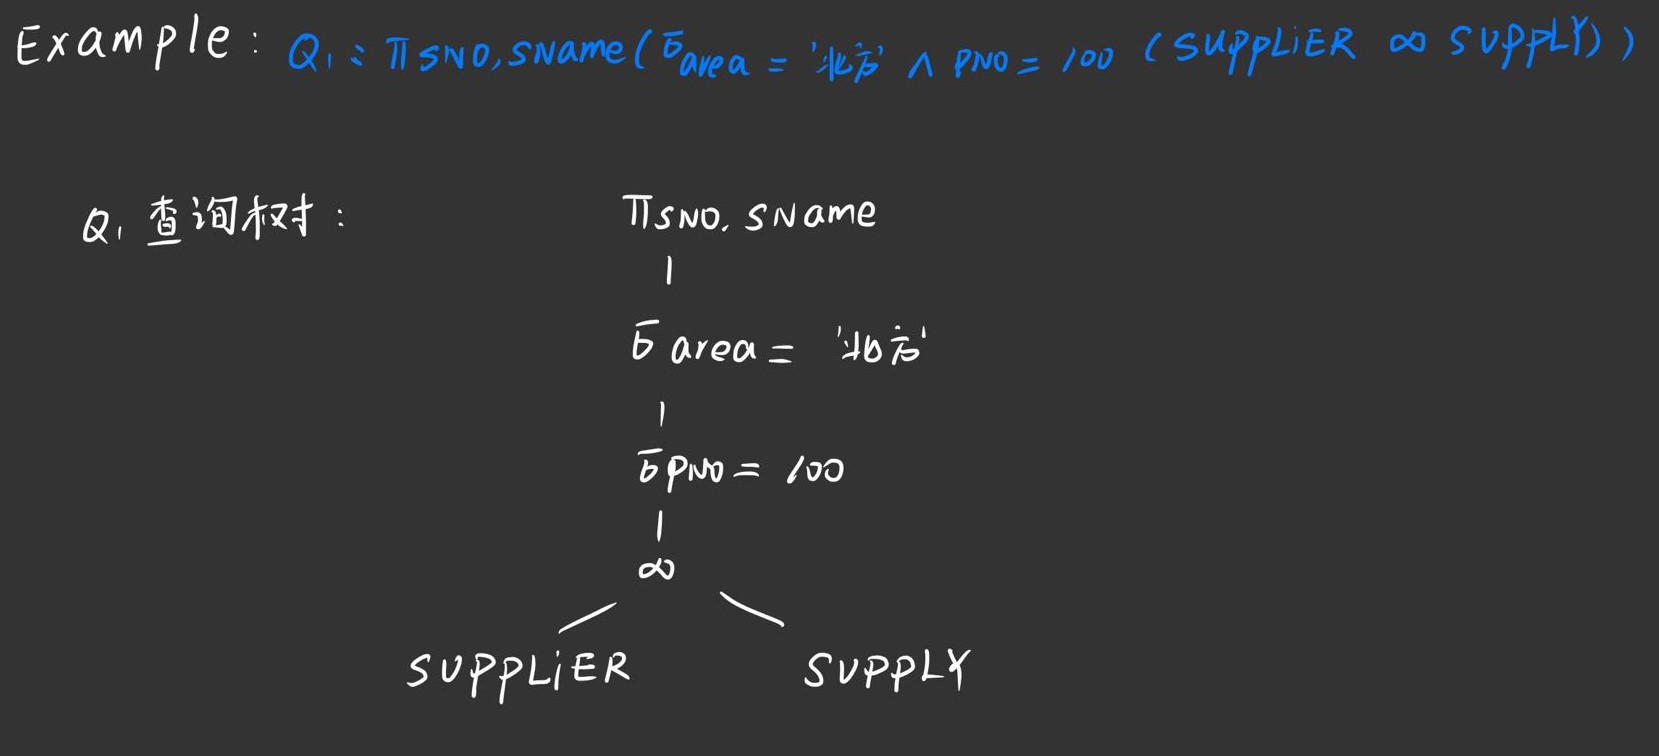 Example: Q₁: π SNO,SName(σ area = '北方' ∧ PNO = 100 (SUPPLiER ∞ SUPPLY))
Q₁ 查询树:
π SNO. SName
σ area = '北方'
σ PNO = 100
∞
SUPPLiER SUPPLY